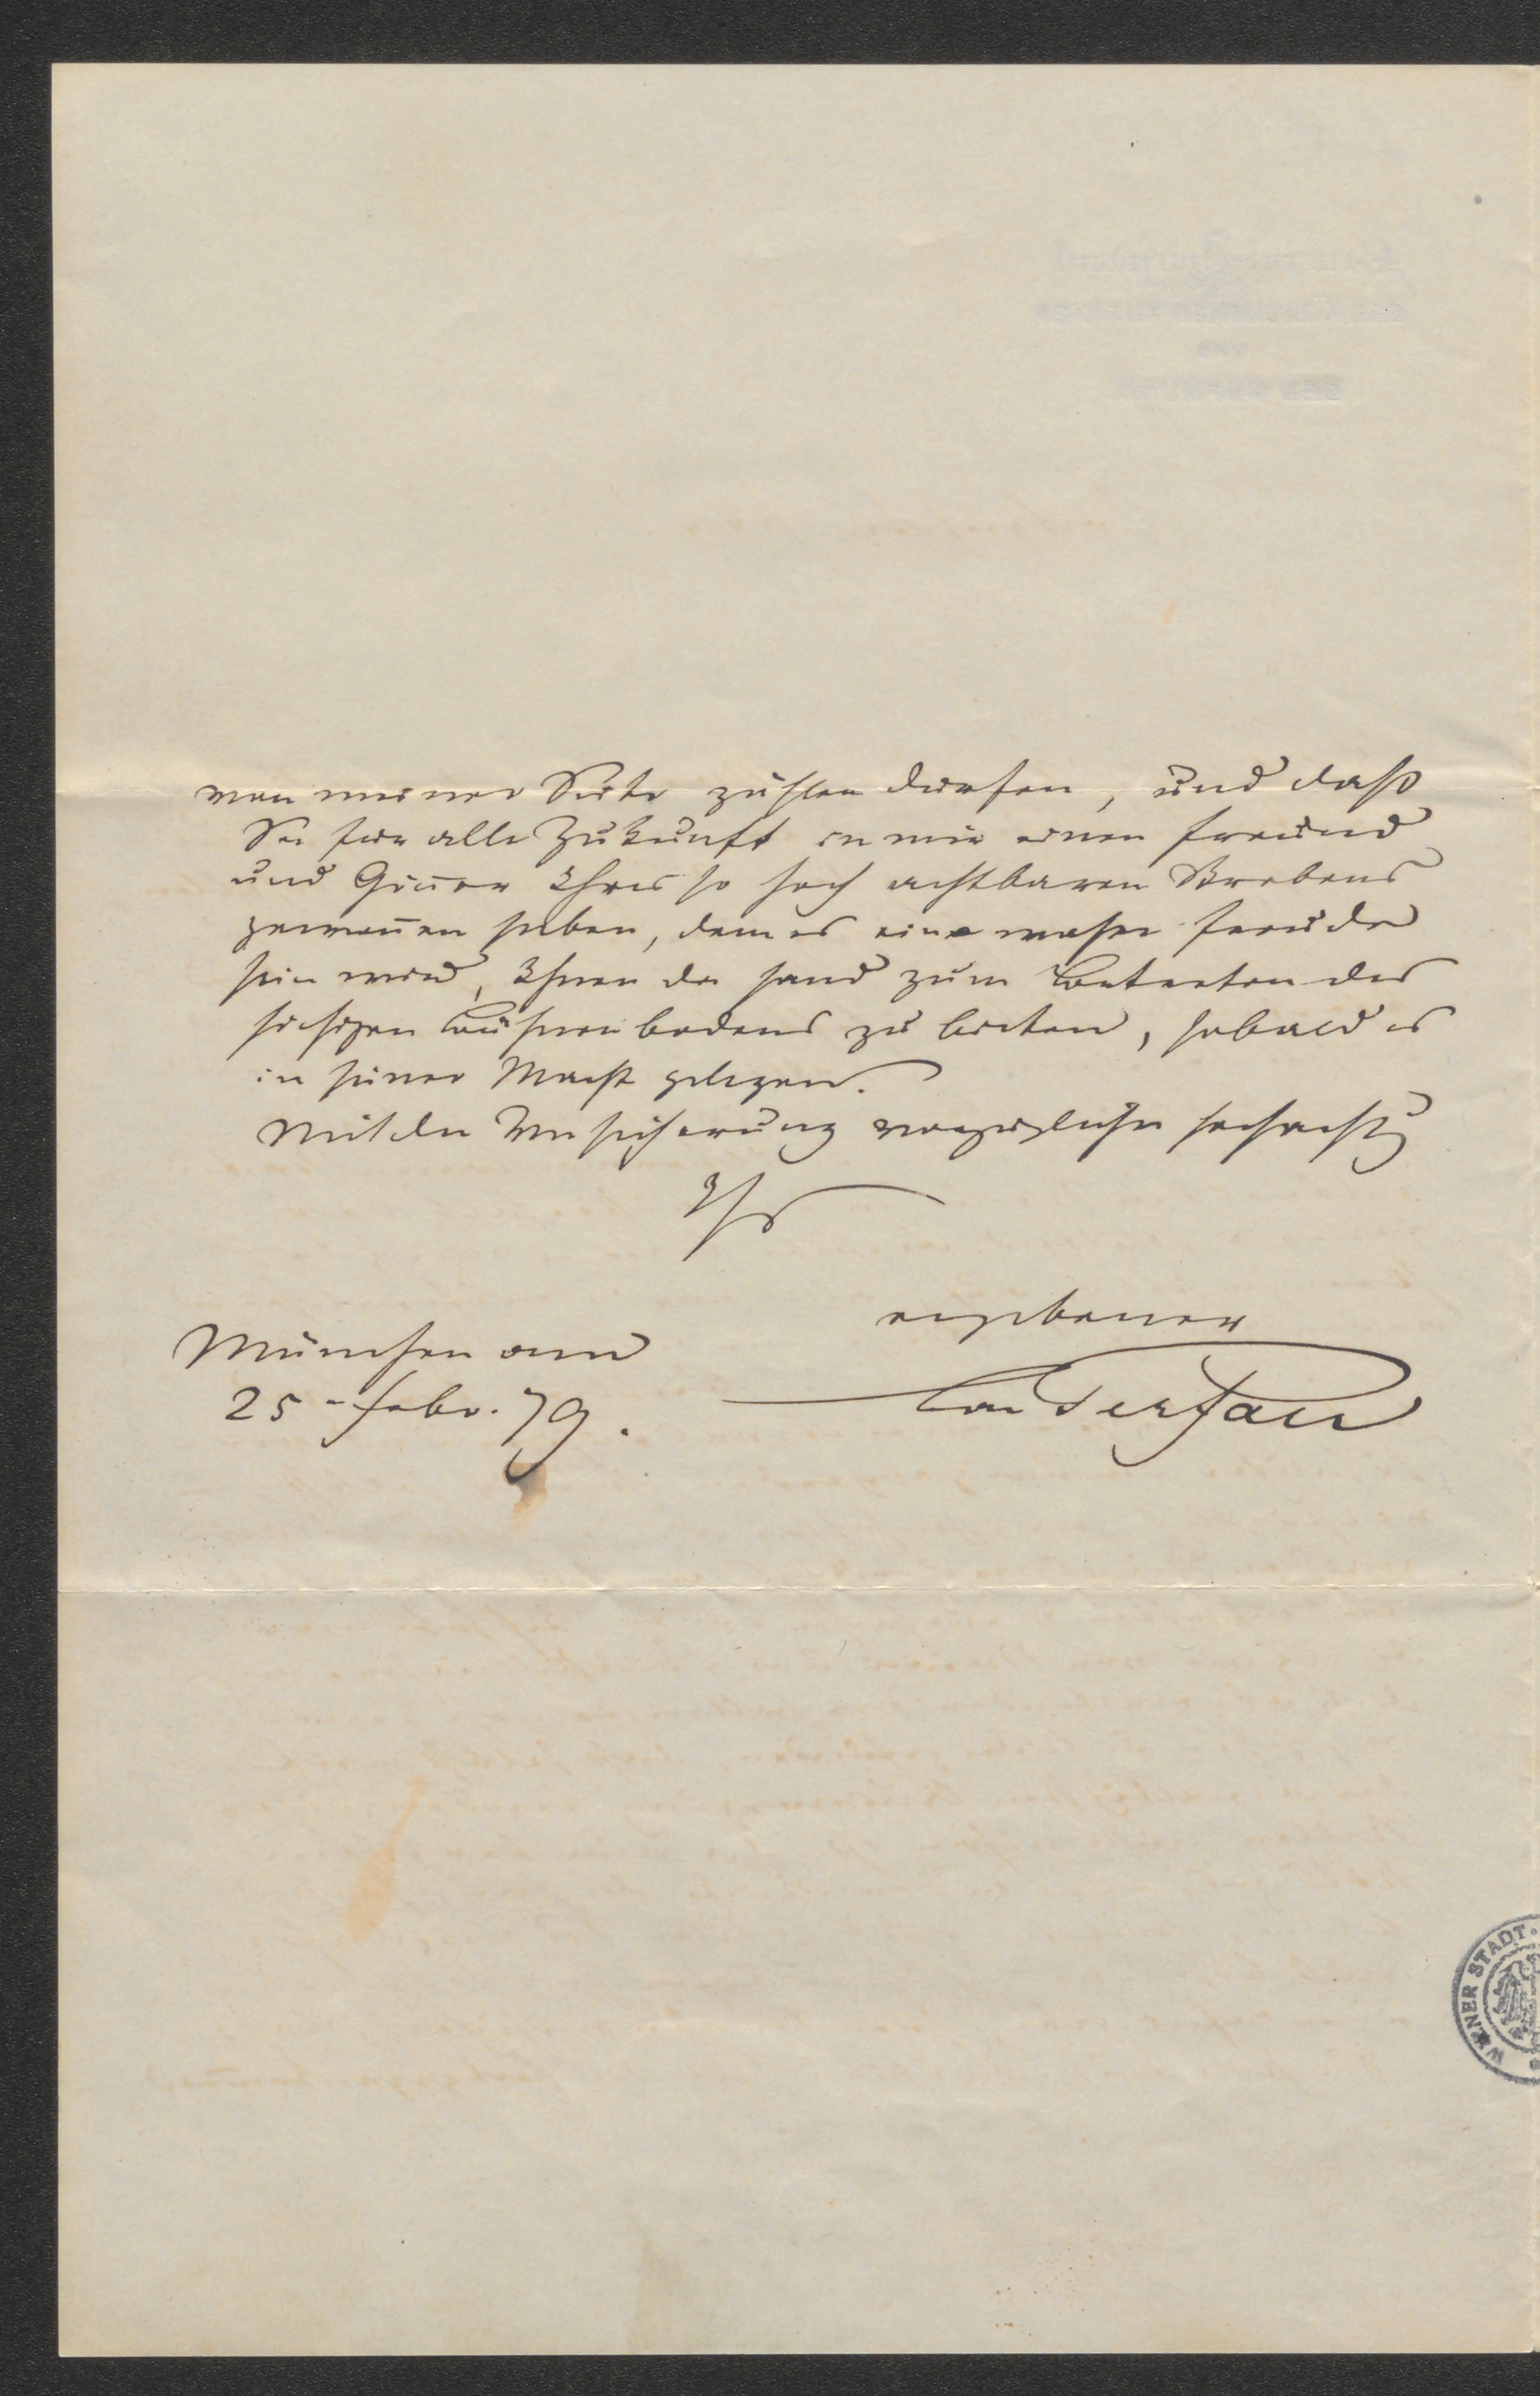 von meiner Seite zählen dürfen, und daß
Sie für alle Zukunft in mir einen Freund
und Gönner Ihres so hoch achtbaren Strebens
gewon̄en haben, dem es eine wahre Freude
sein wird, Ihnen die Hand zum Betreten des
hiesigen Bühnenbodens zu bieten, sobald es
in seiner Macht gelegen.
Mit der Versicherung vorzüglicher Hochacht
Ihr
ergebener
München am
25 - Febr. 79.
WIENER STADT